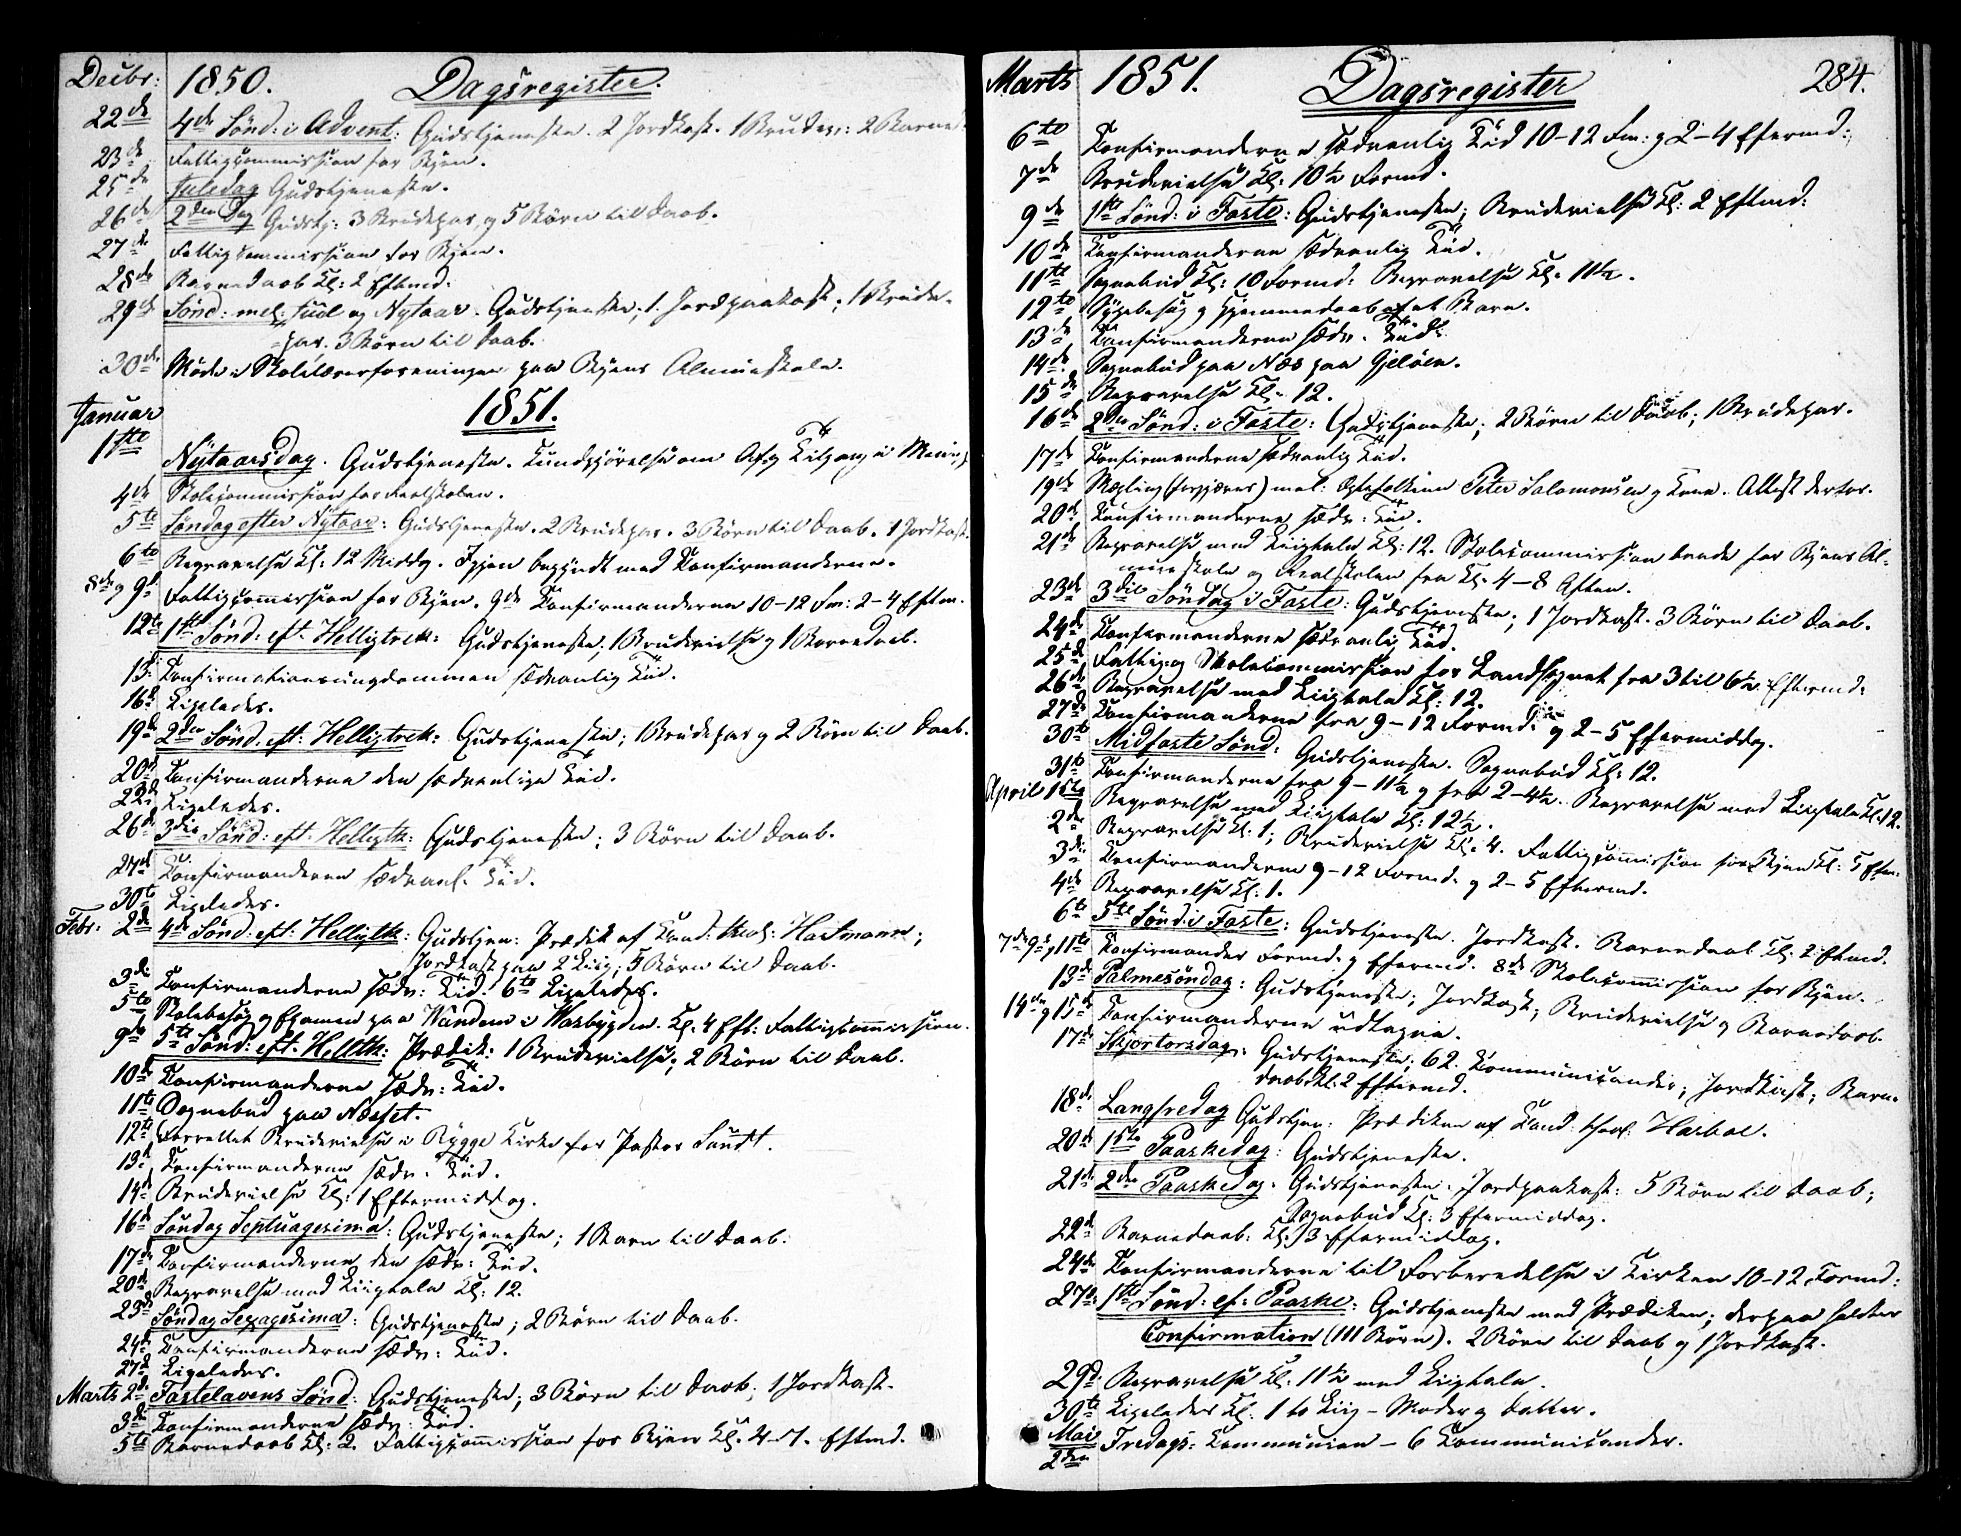 Decbr: 1850. Dagsregister.
22de 4de Sønd: i Advent: Gudstjeneste. 2 Jordkast. 1 Brudep: 2 Barned.
23de Fattigcommission for Byen.
25de Juledag Gudstjeneste.
26de 2den Dag Gudstj: 3 Brudepar og 5 Børn til Daab.
27de Fattigcommission for Byen.
28de Barnedaab Kl: 2 Eftmd:
29de Sønd: mel. Juul og Nytaar. Gudstjeneste; 1. Jordpaakast; 1 Brude-
par. 3 Børn til Daab.
30de Møde i Skolelærerforeningen paa Byens Almueskole.
Januar 1851.
1ste Nytaarsdag. Gudstjeneste. Kundgjørelse om Af- og Tilgang i Menigh:
4de Skolecommission for Realskolen.
5te Søndag efter Nytaar: Gudstjeneste. 2 Brudepar. 3 Børn til Daab. 1 Jordkast.
6te Begravelse Kl: 12 Middg. Igjen begyndt med Confirmanderne.
8de og 9de Fattigcommission for Byen. 9de Confirmanderne 10-12 Fm: 2-4 Eftm.
12te 1ste Sønd: eft. Helligtrek: Gudstjeneste, 1 Brudevielse og 1 Barnedaab.
13de Confirmationsungdommen sædvanlig Tiid.
16de Ligeledes.
19de 2den Sønd. eft: Helligtrek: Gudstjeneste; 1 Brudepar og 2 Børn til Daab.
20de Confirmanderne den sædvanlige Tiid.
23de Ligeledes.
26de 3die Sønd: eft: Helligtk: Gudstjeneste; 3 Børn til Daab.
27de Confirmanderne sædvanl. Tiid.
30te Ligeledes.
Febr. 2de 4de Sønd: eft: Helligtk: Gudstjen: Prædik af Cand: theol: Hartmann;
Jordkast paa 2 Liig; 5 Børn til Daab.
3de Confirmanderne sædv: Tiid. 6te Ligeledes.
5te Skolebesøg og Examen paa Vanden i Varbygden. Kl. 4 Eft: Fattigcommission.
9de 5te Sønd: eft: Helltk: Prædik: 1 Brudevielse; 2 Børn til Daab.
10de Confirmanderne sædv: Tiid.
11te Sognebud paa Næsset.
12te Forrettet Brudevielse i Rygge Kirke for Pastor Sundt.
13de Confirmanderne sædv. Tiid.
14de Brudevielse Kl: 1 Eftermiddag.
16de Søndag Septuagesima: Gudstjeneste; 1 Barn til Daab.
17de Confirmanderne den sædv: Tiid.
20de Begravelse med Liigtale Kl: 12.
23de Søndag Sexagesima: Gudstjeneste; 2 Børn til Daab.
24de Confirmanderne sædv: Tiid.
27de Ligeledes.
Marts 2de Fastelavens Sønd: Gudstjeneste; 3 Børn til Daab; 1 Jordkast.
3de Confirmanderne sædv: Tiid.
5te Barnedaab Kl: 2. Fattigcommission for Byen Kl. 4-7. Eftmd.
Marts 1851. Dagsregister 284.
6te Confirmanderne sædvanlig Tid 10-12 Fm: og 2-4 Eftermd:
7de Brudevielse Kl: 10½ Formd.
9de 1ste Sønd: i Faste: Gudstjeneste; Brudevielse Kl: 2 Eftmd:
10de Confirmanderne sædvanlig Tiid.
11te Sognebud Kl: 10 Formd: Begravelse Kl. 11½.
12te Sygebesøg og Hjemmedaab af et Barn.
13de Confirmanderne sædv. Tiid.
14de Sognebud paa Næs paa Gjeløen.
15de Begravelse Kl. 12.
16de 2den Sønd: i Faste: Gudstjeneste; 2 Børn til Daab; 1 Brudepar.
17de Confirmanderne sædvanlig Tiid.
19de Mægling (forgjæves) mel: Ægtefolkene Peter Salomonsen og Kone. Attest derfor.
20de Confirmanderne sædv: Tiid.
21de Begravelse med Liigtale Kl: 12. Skolecommission baade for Byens Al-
mueskole og Realskolen fra Kl. 4-8 Aften.
23de 3die Søndag i Faste: Gudstjeneste; 1 Jordkast. 3 Børn til Daab.
24de Confirmanderne sædvanlig Tiid.
25de Fattig- og Skolecommission for Landsognet fra 3 til 6½ Eftermd:
26de Begravelse med Liigtale Kl: 12.
27de Confirmanderne fra 9-12 Formd: og 2-5 Eftermiddag.
30te Midfaste Sønd: Gudstjeneste. Sognebud Kl: 12.
31te Confirmanderne fra 9-11½ og fra 2-4½. Begravelse med Liigtale Kl. 12.
April 1ste Begravelse med Liigtale Kl: 12½.
2de Begravelse Kl. 1; Brudevielse Kl: 4. Fattigcommission for Byen Kl: 5 Eftm:
3de Confirmanderne 9-12 Formd. og 2-5 Eftermd.
4de Begravelse Kl: 1.
6te 5te Sønd: i Faste: Gudstjeneste. Jordkast. Barnedaab Kl. 2 Eftmd.
7de 9de og 11te Confirmander Formd. og Eftermd. 8de Skolecommission for Byen.
13de Palmesøndag: Gudstjeneste; Jordkast; Brudevielse og Barnedaab.
14de og 15de Confirmanderne udtagne.
17de Skjørtorsdag: Gudstjeneste; 62. Kommunicander; Jordkast; Barne-
daab Kl: 2 Eftermd.
18de Langfredag Gudstjen: Prædiken af Cand. theol. Harboe.
20de 1ste Paaskedag: Gudstjeneste.
21de 2den Paaskedag. Gudstjeneste. Jordpaakast: 5 Børn til Daab;
Sognebud Kl: 3 Eftermiddag.
22de Barnedaab. Kl: 3 Eftermiddag.
24de Confirmanderne til Forberedelse i Kirken 10-12 Formd:
27de 1ste Sønd: ef: Paaske: Gudstjeneste med Prædiken; derpaa holdtes
Confirmation (111 Børn). 2 Børn til Daab og 1 Jordkast.
29de Begravelse Kl. 11½ med Liigtale.
30te Ligeledes Kl: 1 to Liig - Moder og Datter.
Mai
2den Fredags: Kommunion - 6 Kommunicander.